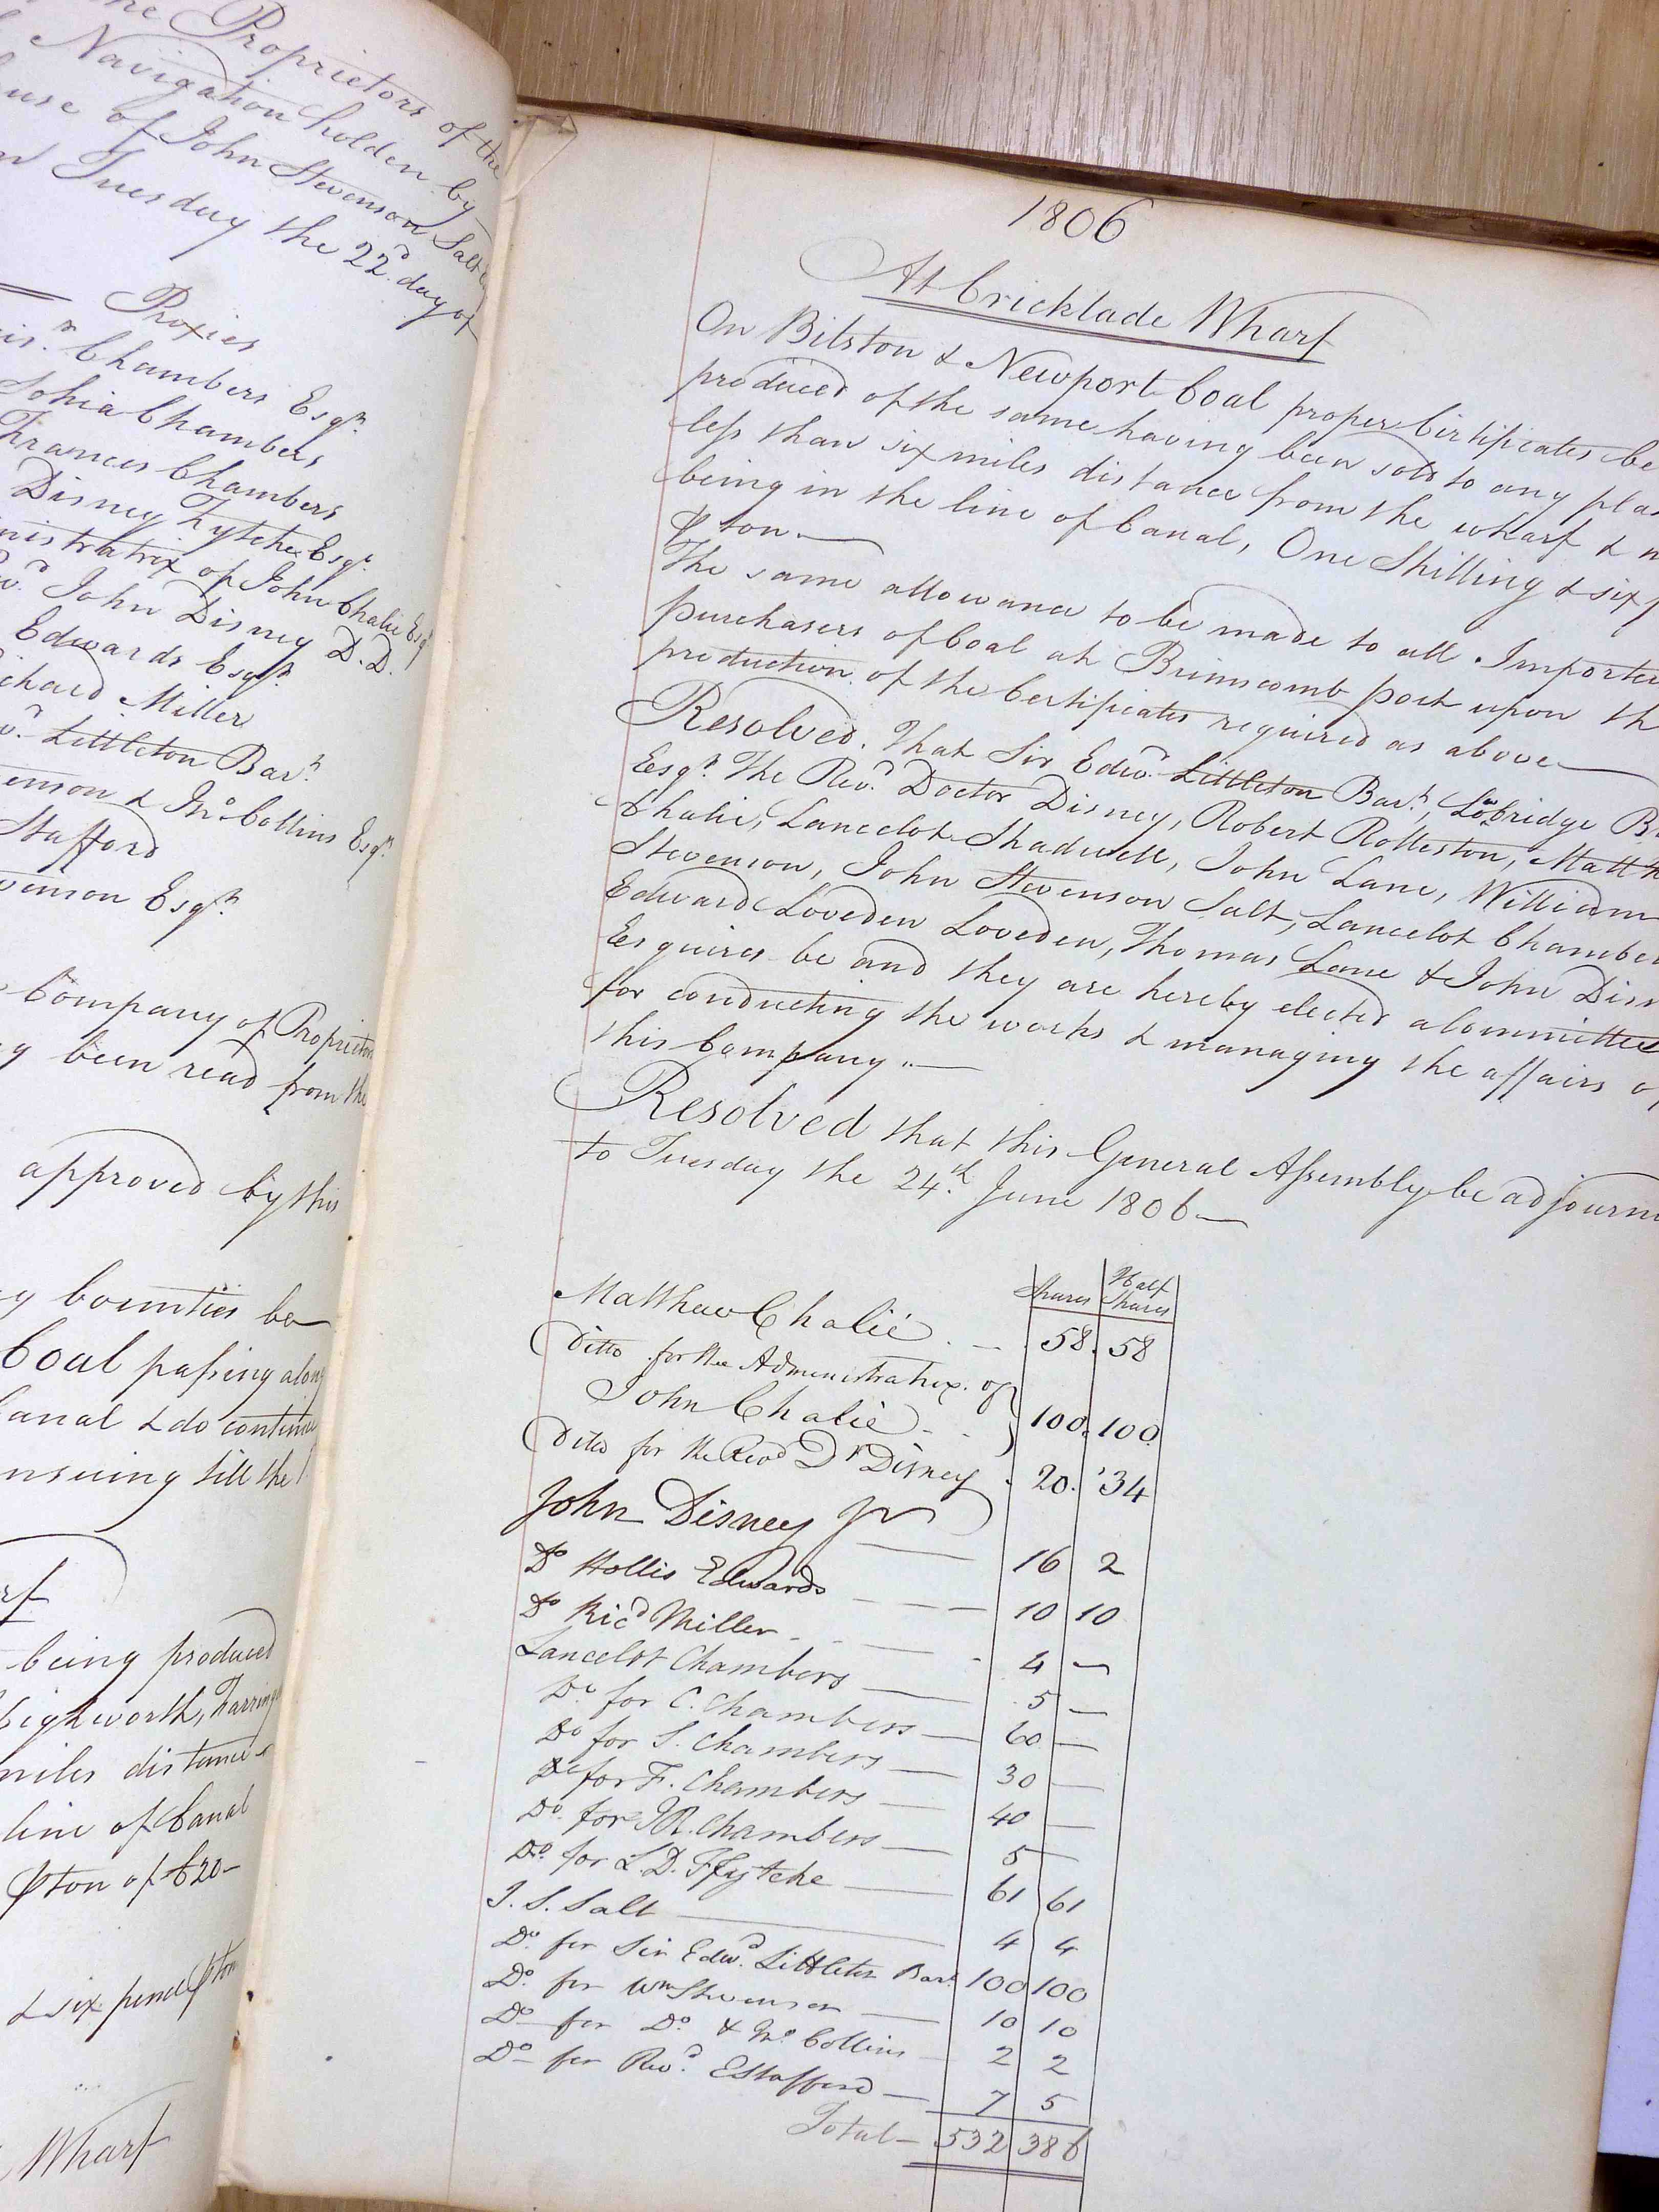 the Proprietors of the
Navigation holden by
use of John Stevenson Salt
Tuesday the 22d. day of
Proxies
Chambers Esqr.
Sophia Chambers
Frances Chambers
Disney Fytche Esqr.
nistratrix of John Chalie Esqr
John Disney D.D.
Edwards Esqr.
ichard Miller
Littleton Bart.
enson & Jno. Collins Esqr.
Stafford
venson Esqr.
Company of Proprietors
been read from the
approved by this
y bounties be
Coal passing along
Canal & do continue
nsuing till the
being produced
Highworth, Farring
miles distance
line of Canal
⅌ ton of £20-
& six pence ⅌ ton
Wharf
1806
At Cricklade Wharf
On Bilston & Newport Coal proper Certificates be
produced of the same having been sold to any pla
less than six miles distance from the wharf & n
being in the line of Canal, One Shilling & six p
⅌ ton.—
The same allowance to be made to all Importer
purchasers of Coal at Brimscomb port upon th
production of the Certificates required as above—
Resolved. That Sir Edwd. Littleton Bart.,
Esqr. The Revd. Doctor Disney, Robert Rolleston, Matth
Chalie, Lancelot Shadwell, John Lane, William
Stevenson, John Stevenson Salt, Lancelot Chamber
Edward Loveden Loveden, Thomas Lane & John Disn
Esquires be and they are hereby elected a Committee
for conducting the works & managing the affairs of
this Company.—
Resolved that this General Assembly be adjourn
to Tuesday the 24th. June 1806—
Shares Half Shares
Matthew Chalié 58. 58
Ditto for the Administratrix of
John Chalié 100. 100.
Ditto for the Revd Dr Disney 20. 34
John Disney Jr — 16 2
Do Hollis Edwards — 10 10
Do Ricd Miller — 4 —
Lancelot Chambers — 5 —
Do. for C. Chambers — 60 —
Do for S. Chambers — 30 —
Do for F. Chambers — 40 —
Do. for R. Chambers — 5 —
Do. for L. D. Ffytche — 61 61
J. S. Salt — 4 4
Do. for Sir Edwd. Littleton Bart. 100 100
Do. for Wm Stevenson — 10 10
Do for Do. & Jno. Collins — 2 2
Do for Revd. E Stafford — 7 5
Total — 532 386